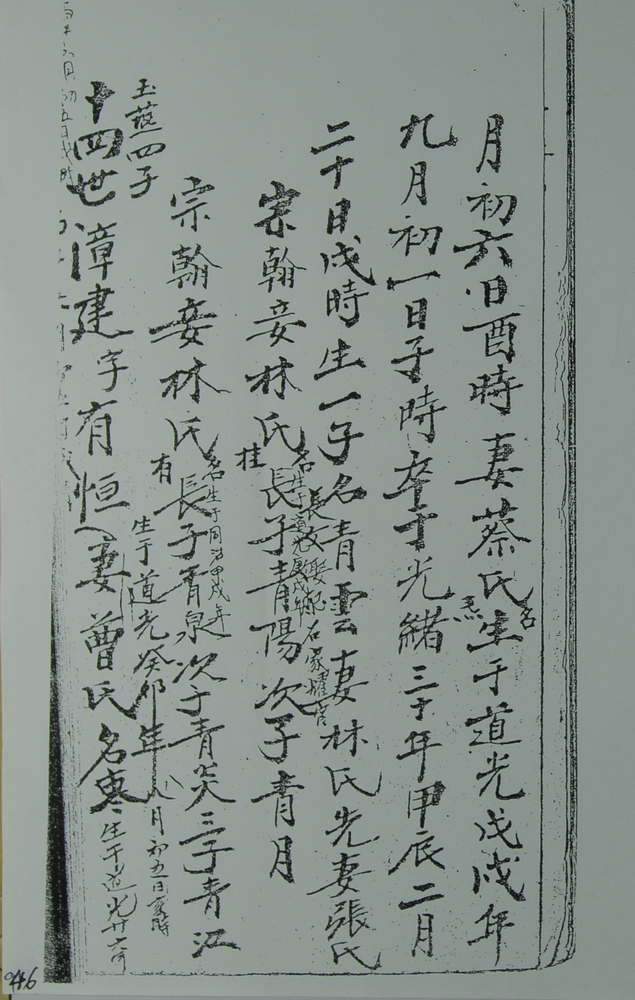 月初六日酉時妻蔡氏名生于道光戊戌年
九月初一日子時卒于光緒三十年甲辰二月
二十日戌時生一子名青雲妻林氏先妻張氏
宗翰妾林氏桂長子青陽次子青月
名生于同治甲戌年
宗翰妾林氏有長子青泉次子青炎三子青江
玉蔉四子
生于道光癸卯年八月初五日亥時
十四世漳建字有恒妻曾氏名寒生于道光廿六年
046